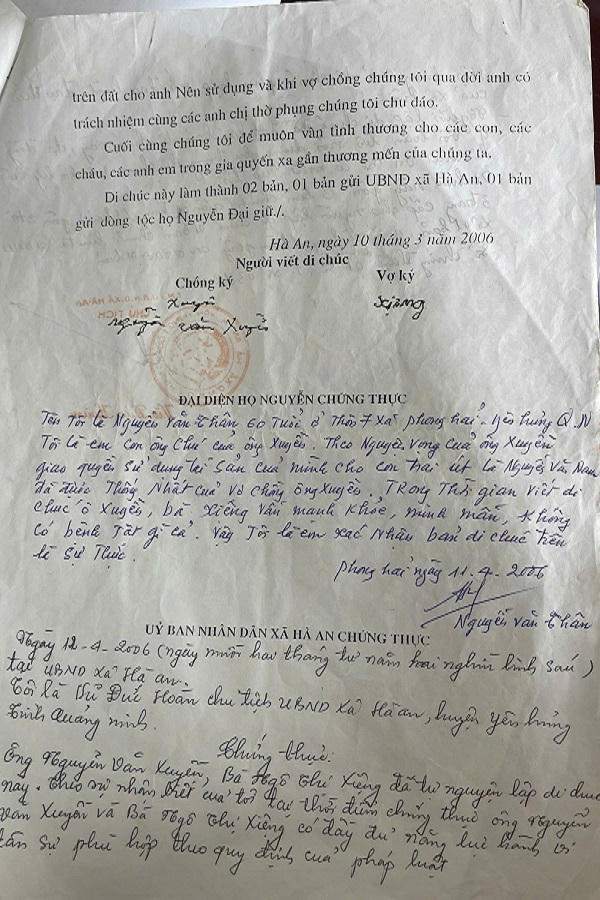 trên đất cho anh Nên sử dụng và khi vợ chồng chúng tôi qua đời anh có
trách nhiệm cùng các anh chị thờ phụng chúng tôi chu đáo.
Cuối cùng chúng tôi để muôn vàn tình thương cho các con, các
cháu, các anh em trong gia quyến xa gần thương mến của chúng ta.
Di chúc này làm thành 02 bản, 01 bản gửi UBND xã Hà An, 01 bản
gửi dòng tộc họ Nguyễn Đại giữ./.
Hà An, ngày 10 tháng 3 năm 2006
Người viết di chúc
Chồng ký Vợ ký
Xuyễn Xiêng
Nguyễn Văn Xuyễn
ĐẠI DIỆN HỌ NGUYỄN CHỨNG THỰC
Tên Tôi là Nguyễn Văn Thân 60 Tuổi ở Thôn 7 Xã phong hải - yên hưng Q.N
Tôi là em con ông Chú của ông Xuyễn. Theo Nguyện Vọng của ông Xuyễn
giao quyền Sử dụng tài Sản của mình cho con trai út là Nguyễn Văn
đã được Thống Nhất của vợ chồng ông Xuyễn. Trong Thời gian viết di
chúc ô Xuyễn, bà Xiêng Vẫn mạnh Khỏe, minh mẫn, Không
có bệnh Tật gì cả. Vậy Tôi là em xác Nhận bản di chúc Trên
là Sự Thực.
phong hải ngày 11-4-2006
Nguyễn Văn Thân
UỶ BAN NHÂN DÂN XÃ HÀ AN CHỨNG THỰC
Ngày 12-4-2006 (ngày mười hai tháng tư năm hai nghìn linh sáu)
tại UBND xã Hà an.
Tôi là Đức Hoàn chủ tịch UBND xã Hà an, huyện yên hưng
tỉnh Quảng ninh.
Chứng thực:
Ông Nguyễn Văn Xuyễn, Bà Ngô Thị Xiêng đã tự nguyện lập di chúc
này. Theo sự nhận biết của tôi tại thời điểm chứng thực ông Nguyễn
văn Xuyễn và Bà Ngô Thị Xiêng có đầy đủ năng lực hành vi
dân sự phù hợp theo quy định của pháp luật